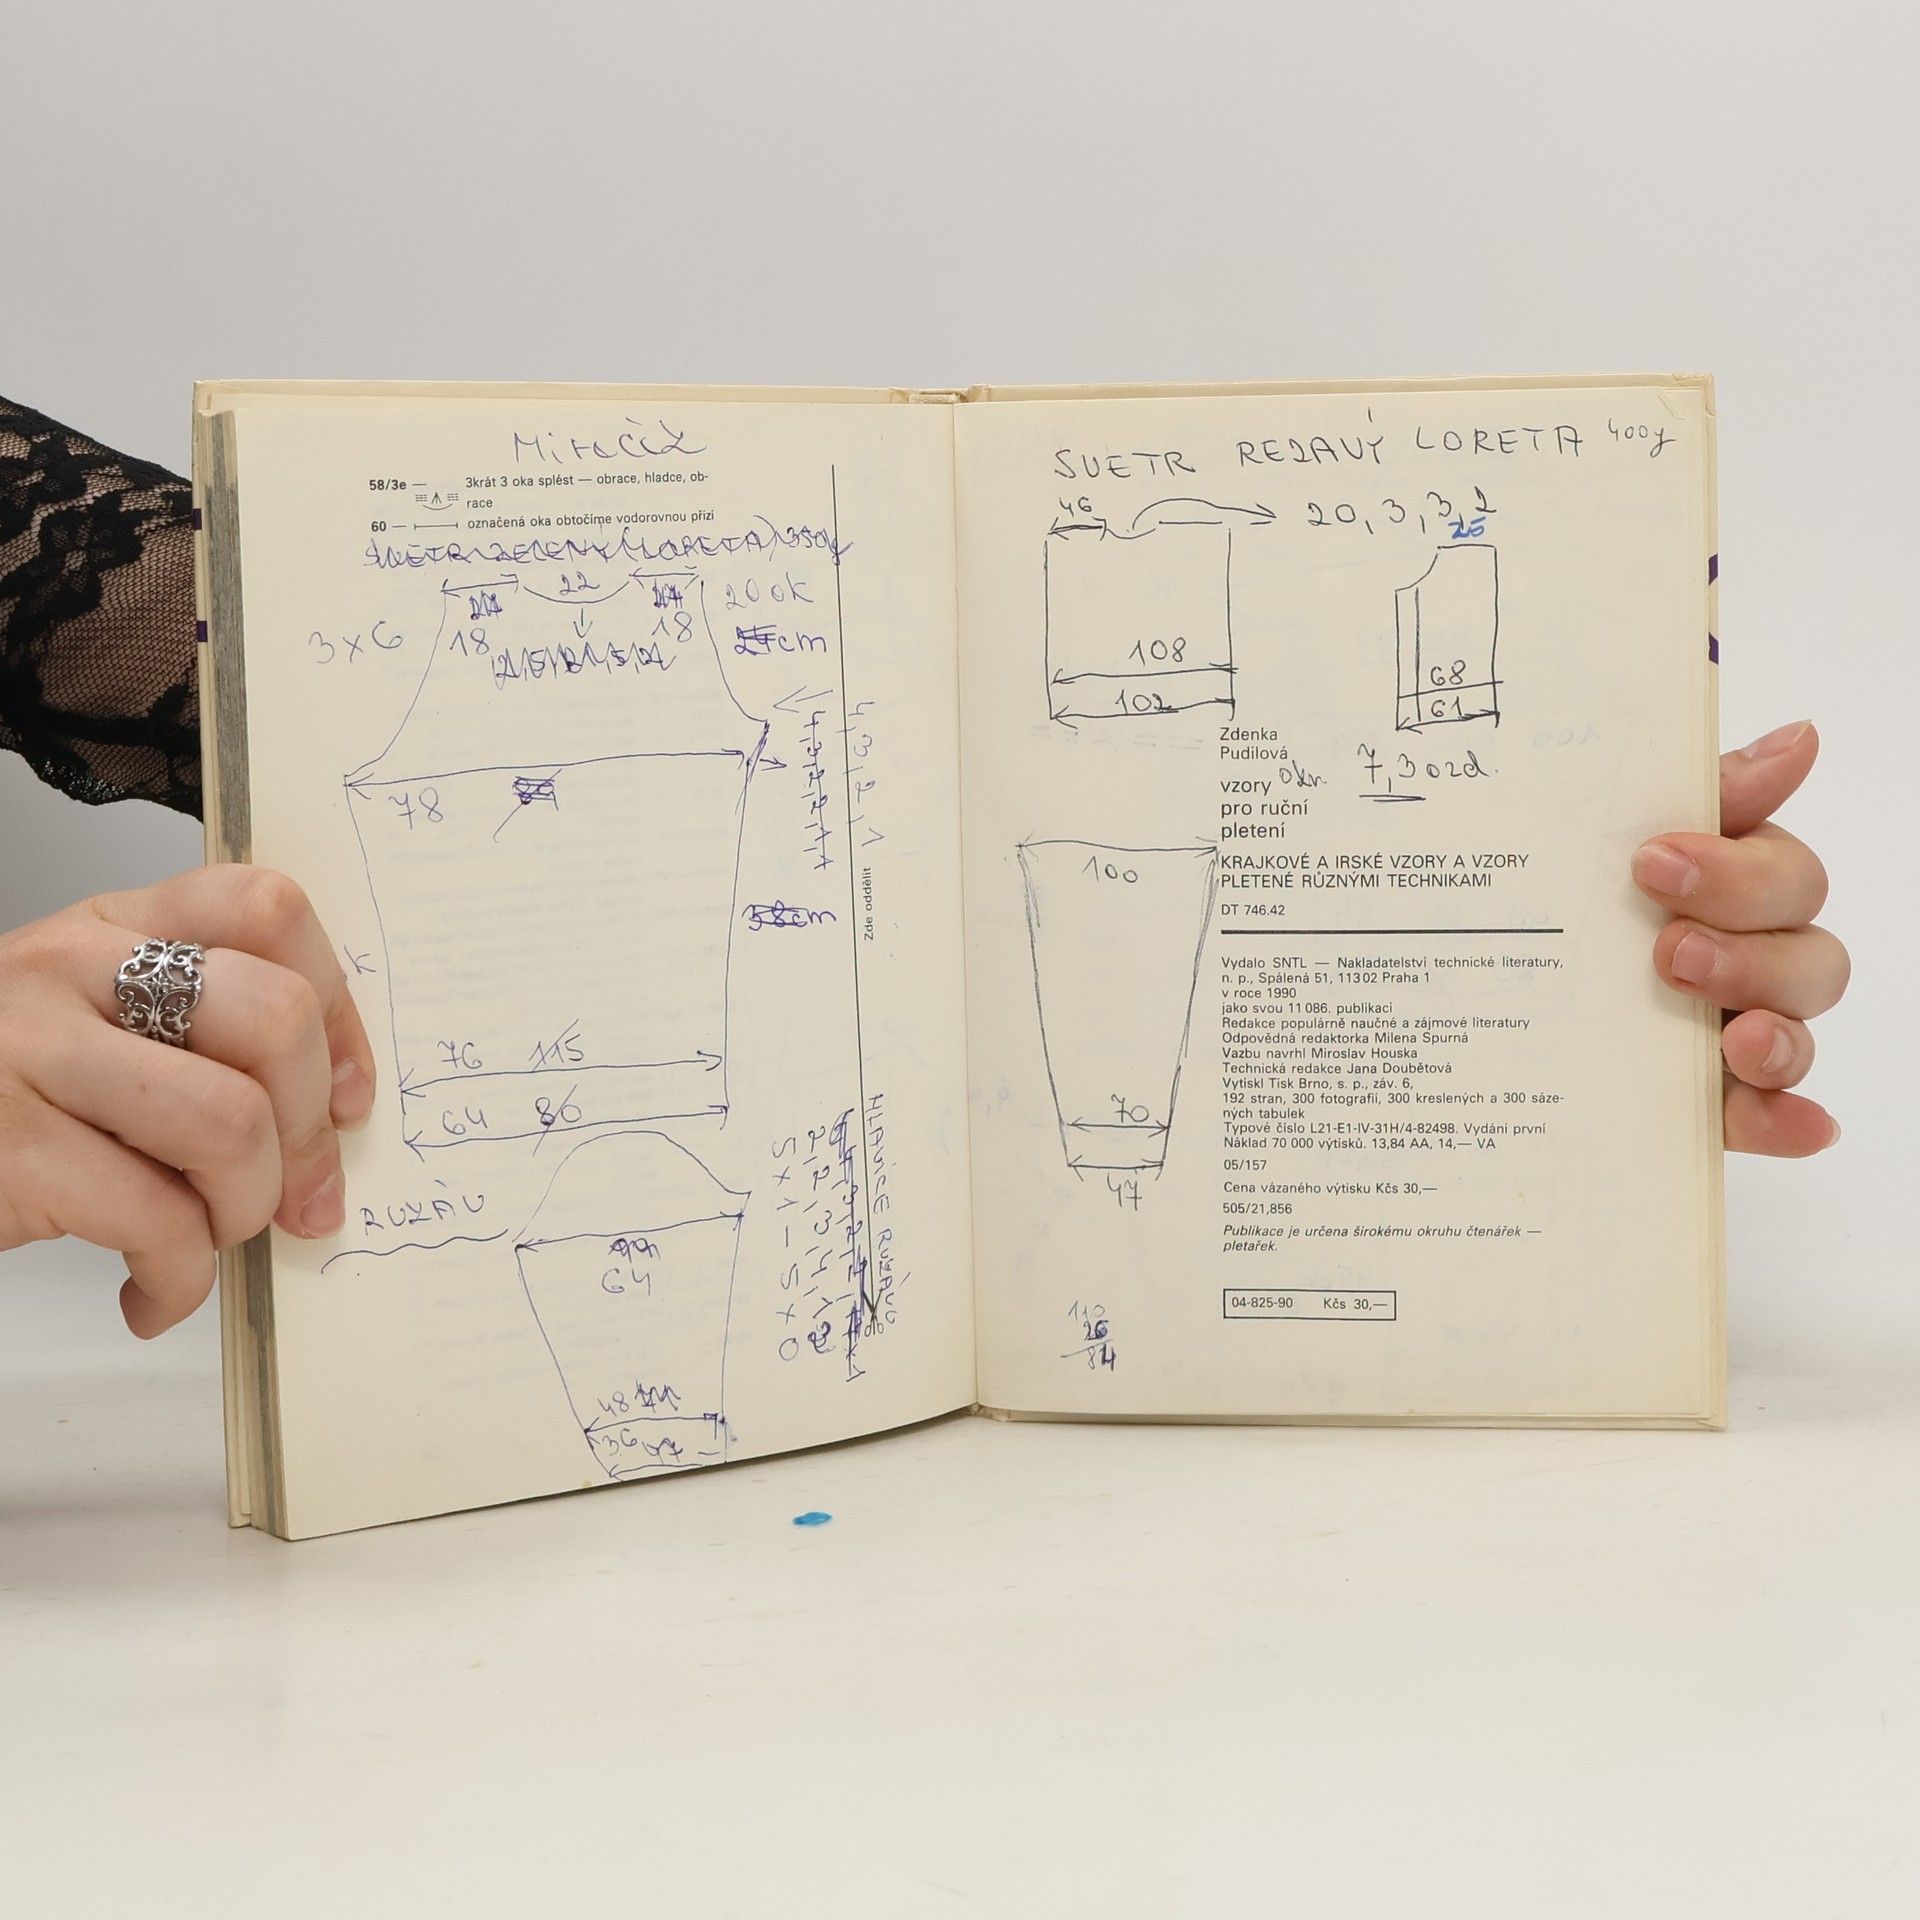 58/3e — 3krát 3 oka splést — obrace, hladce, ob-
race
60 — označená oka obtočíme vodorovnou přízí
SVETR ZELENÝ (LORETA) 350g
22
20 ok
3 x 6
18
18
cm
78
4, 3, 2, 1
Zde oddělit
58cm
K
76 115
64 86
RUKÁV
HLAVICE RUKÁVU
2, 2, 3, 4,
5 x 1 – 5 x 0
64
48
36
SVETR REZAVÝ LORETA 400g
46
20, 3, 3, 2
25
108
102
68
61
Zdenka
Pudilová
vzory
pro ruční
pletení
7, 3 ozd.
100
KRAJKOVÉ A IRSKÉ VZORY A VZORY
PLETENÉ RŮZNÝMI TECHNIKAMI
DT 746.42
Vydalo SNTL — Nakladatelství technické literatury,
n. p., Spálená 51, 113 02 Praha 1
v roce 1990
jako svou 11 086. publikaci
Redakce populárně naučné a zájmové literatury
Odpovědná redaktorka Milena Spurná
Vazbu navrhl Miroslav Houska
Technická redakce Jana Doubětová
Vytiskl Tisk Brno, s. p., záv. 6,
192 stran, 300 fotografií, 300 kreslených a 300 sáze-
ných tabulek
Typové číslo L21-E1-IV-31H/4-82498. Vydání první
Náklad 70 000 výtisků. 13,84 AA, 14,— VA
05/157
Cena vázaného výtisku Kčs 30,—
505/21,856
Publikace je určena širokému okruhu čtenářek —
pletařek.
70
47
04-825-90 Kčs 30,—
110
26
84